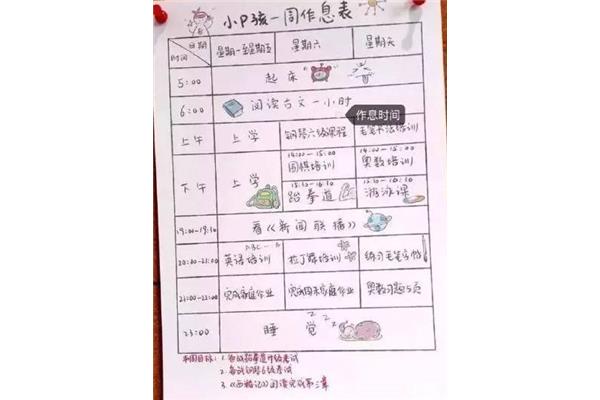 小P孩一周作息表
日期
时间
星期一至星期五 星期六 星期天
5:00 起床
6:00 阅读古文一小时
作息时间
上午 上学 钢琴六级课程 毛笔书法培训
14:00-15:00
围棋培训 奥数培训
下午 上学
15:30-16:30
跆拳道 游泳课
19:00-19:30 看《新闻联播》
20:00-21:00 英语培训 拉丁舞培训 练习毛笔字帖
21:00-22:00 完成家庭作业 完成周末家庭作业 奥数习题5页
23:00 睡觉 zzz
本周目标: 1. 备战跆拳道升级考试
2. 备战钢琴6级考试
3.《西游记》阅读完成第三章